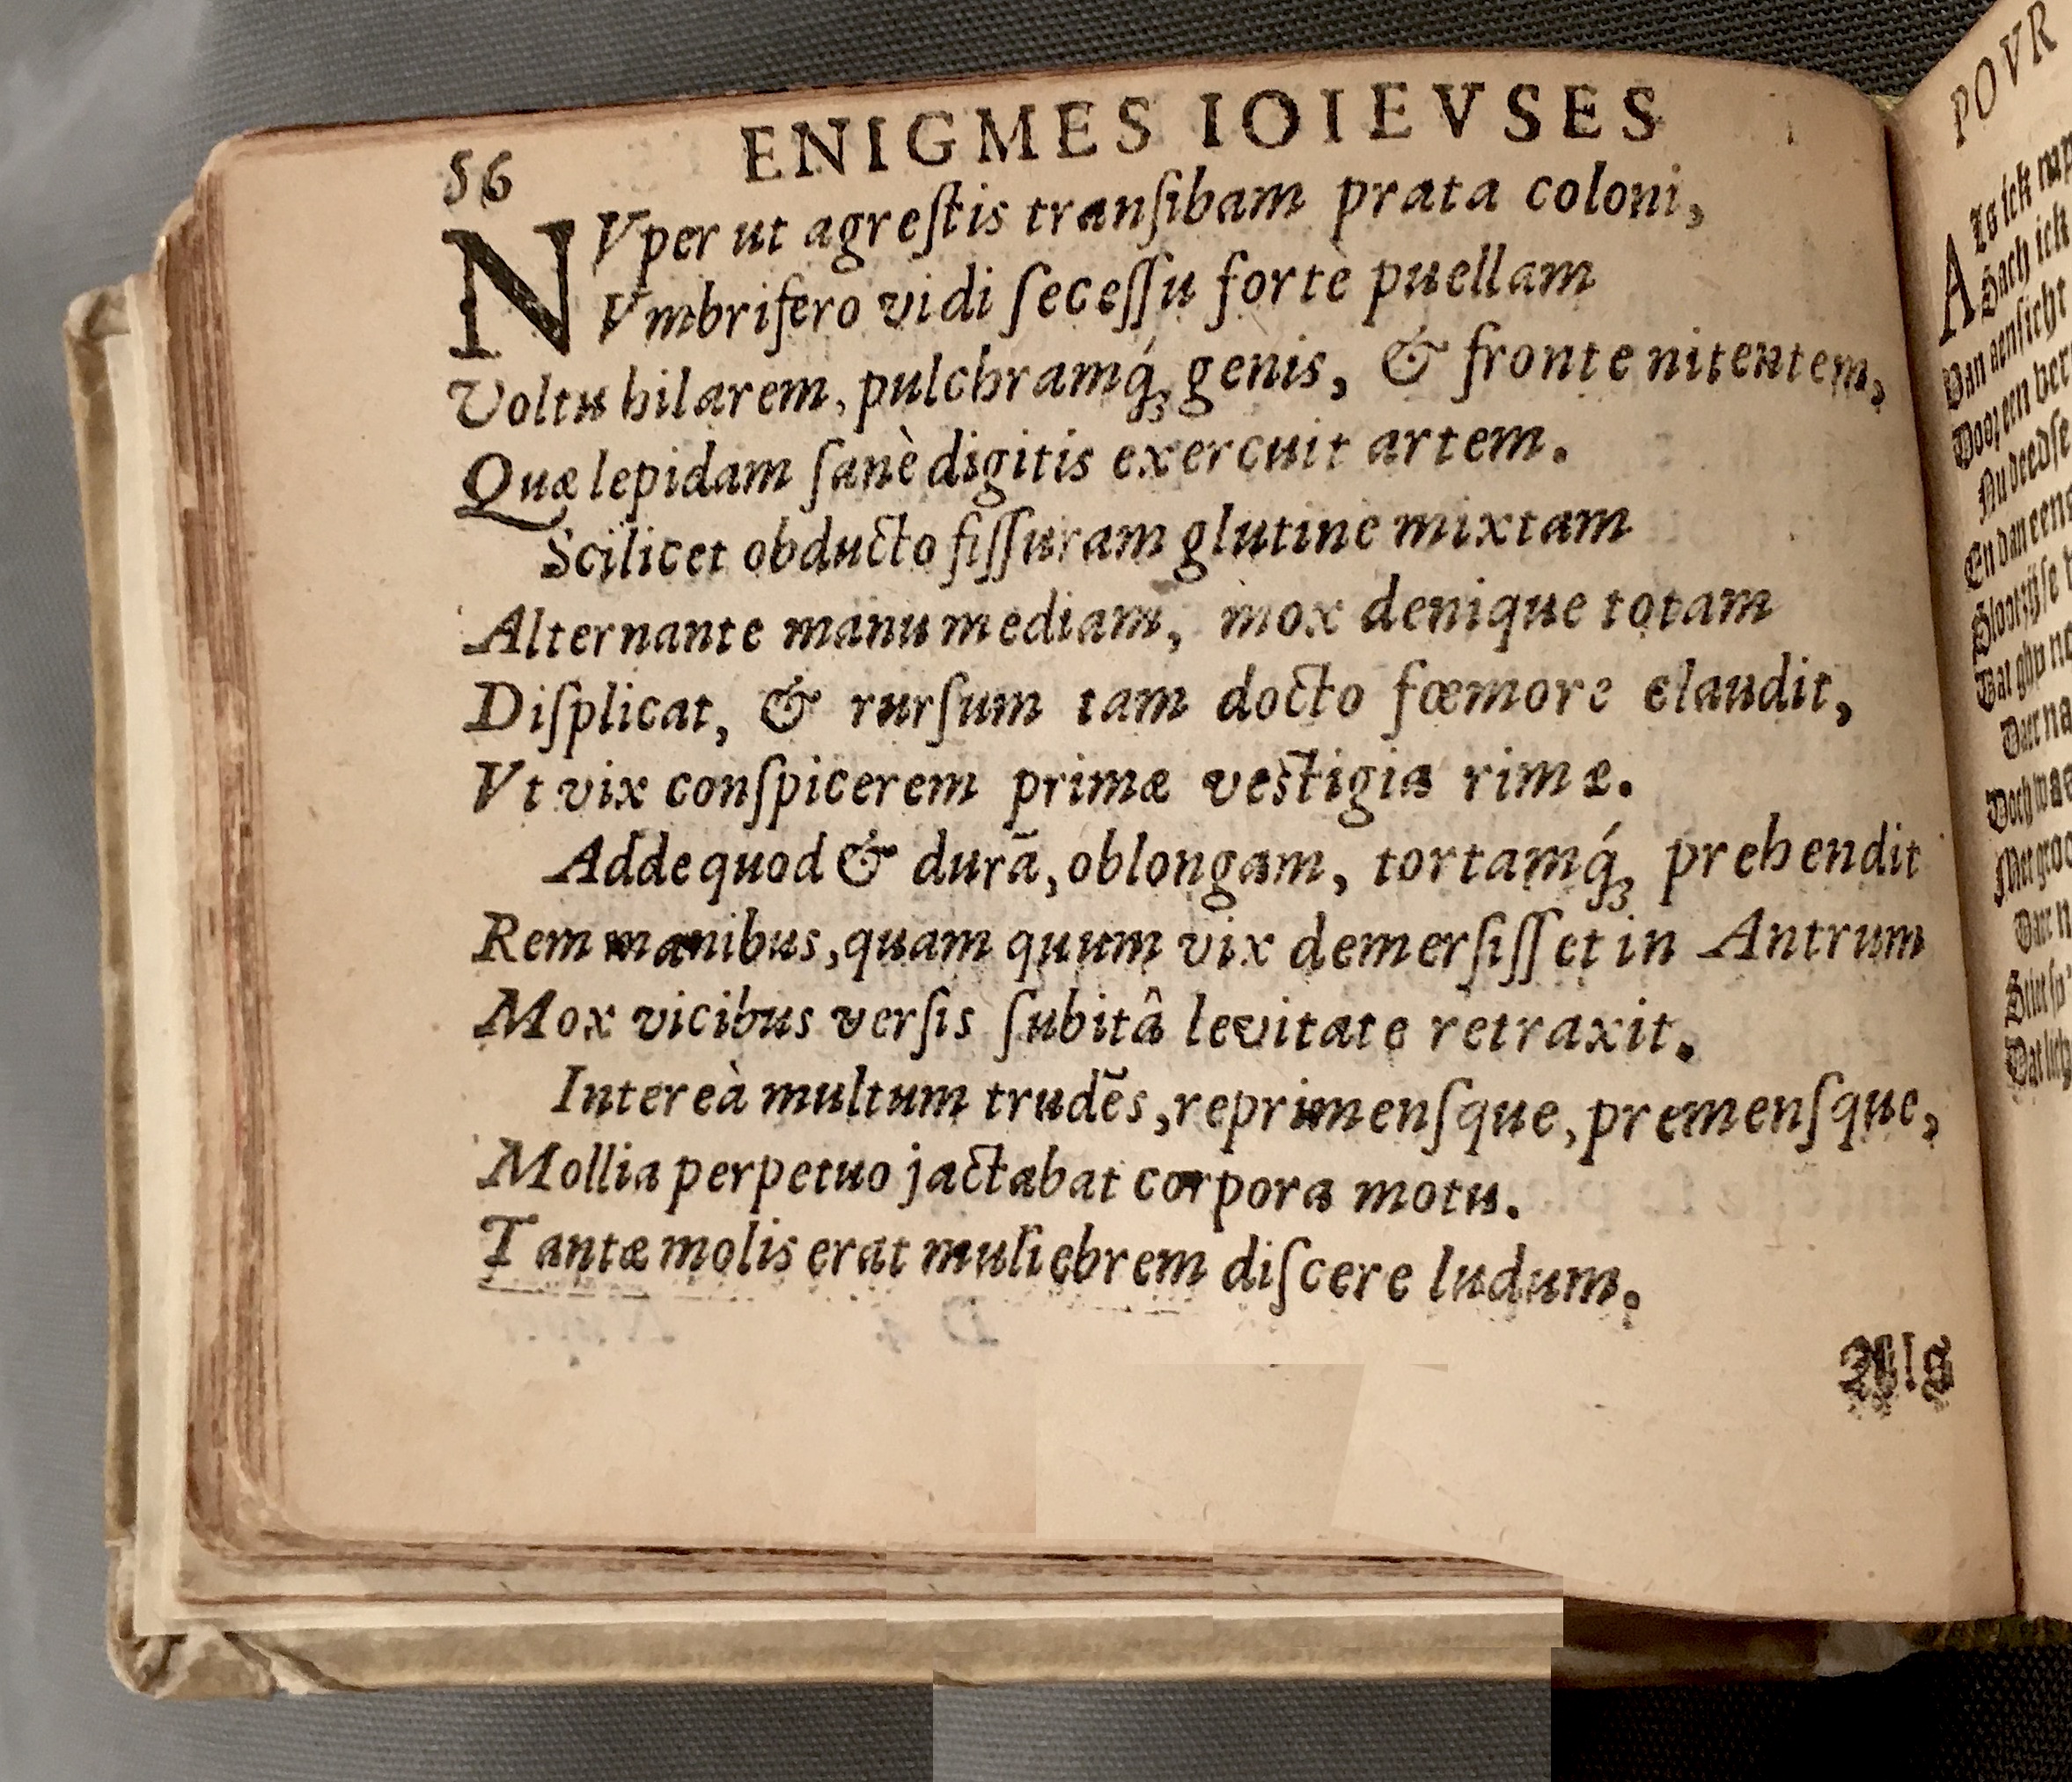 56
ENIGMES IOIEVSES
NVper ut agreſtis tranſibam prata coloni,
Vmbrifero vidi ſeceſſu fortè puellam
Voltu hilarem, pulchramq́ꝫ genis, & fronte nitentem,
Quæ lepidam ſanè digitis exercuit artem.
Scilicet obducto fiſſuram glutine mixtam
Alternante manu mediam, mox denique totam
Diſplicat, & rurſum tam docto fœmore claudit,
Vt vix conſpicerem primæ veſtigia rimæ.
Adde quod & durā, oblongam, tortamq́ꝫ prehendit
Rem manibus, quam quum vix demerſiſſet in Antrum
Mox vicibus verſis ſubitâ levitate retraxit.
Intereà multum trudēs, reprimenſque, premenſque,
Mollia perpetuo jactabat corpora motu.
Tantæ molis erat muliebrem diſcere ludum.
Als
POVR
Als ick
Sach ick
Van aenſicht
Voor een
Nu deedſe
En dan eens
Dat ghy
Daer
Doch
Met
Daer